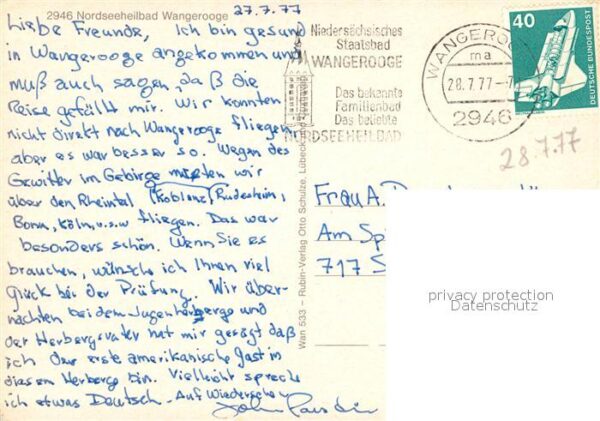 2946 Nordseeheilbad Wangerooge
27.7.77
Liebe Freunde, Ich bin gesund
in Wangerooge angekommen und
muß auch sagen, daß die
Reise gefällt mir. Wir konnten
nicht direkt nach Wangerooge fliegen
aber es war besser so. Wegen des
Gewitter im Gebirge mußten wir
über den Rheintal (Koblenz, Rüdesheim,
Bonn, Köln, u.s.w fliegen. Das war
besonders schön. Wenn Sie es
brauchen, wünsche ich Ihnen viel
Glück bei der Prüfung. Wir über-
nachten bei dem Jugenherberge und
der Herbergsvater hat mir gesagt daß
ich der erste amerikanische Gast in
diesem Herberge bin. Vielleicht sprech
ich etwas Deutsch. Auf Wiedersehen
John
Niedersächsisches
Staatsbad
WANGEROOGE
Das bekannte
Familienbad
Das beliebte
NORDSEEHEILBAD
WANGEROO
ma
28.7.77-7
2946
40
DEUTSCHE BUNDESPOST
28.7.77
Wan 533 – Rubin-Verlag Otto Schulze, Lübeck und
Frau A.
Am Spi
717 S
privacy protection
Datenschutz